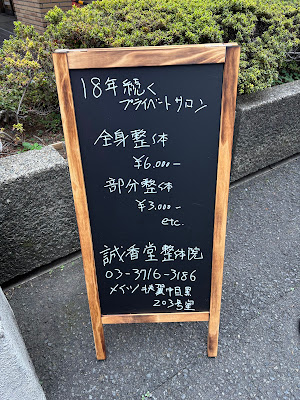 18年続く
プライベートサロン
全身整体
¥6.000-
部分整体
¥3.000-
etc.
誠香堂整体院
03-3716-3186
メイツ 中目黒
203号室